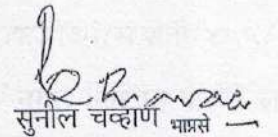 सुनील चव्हाण भाप्रसे